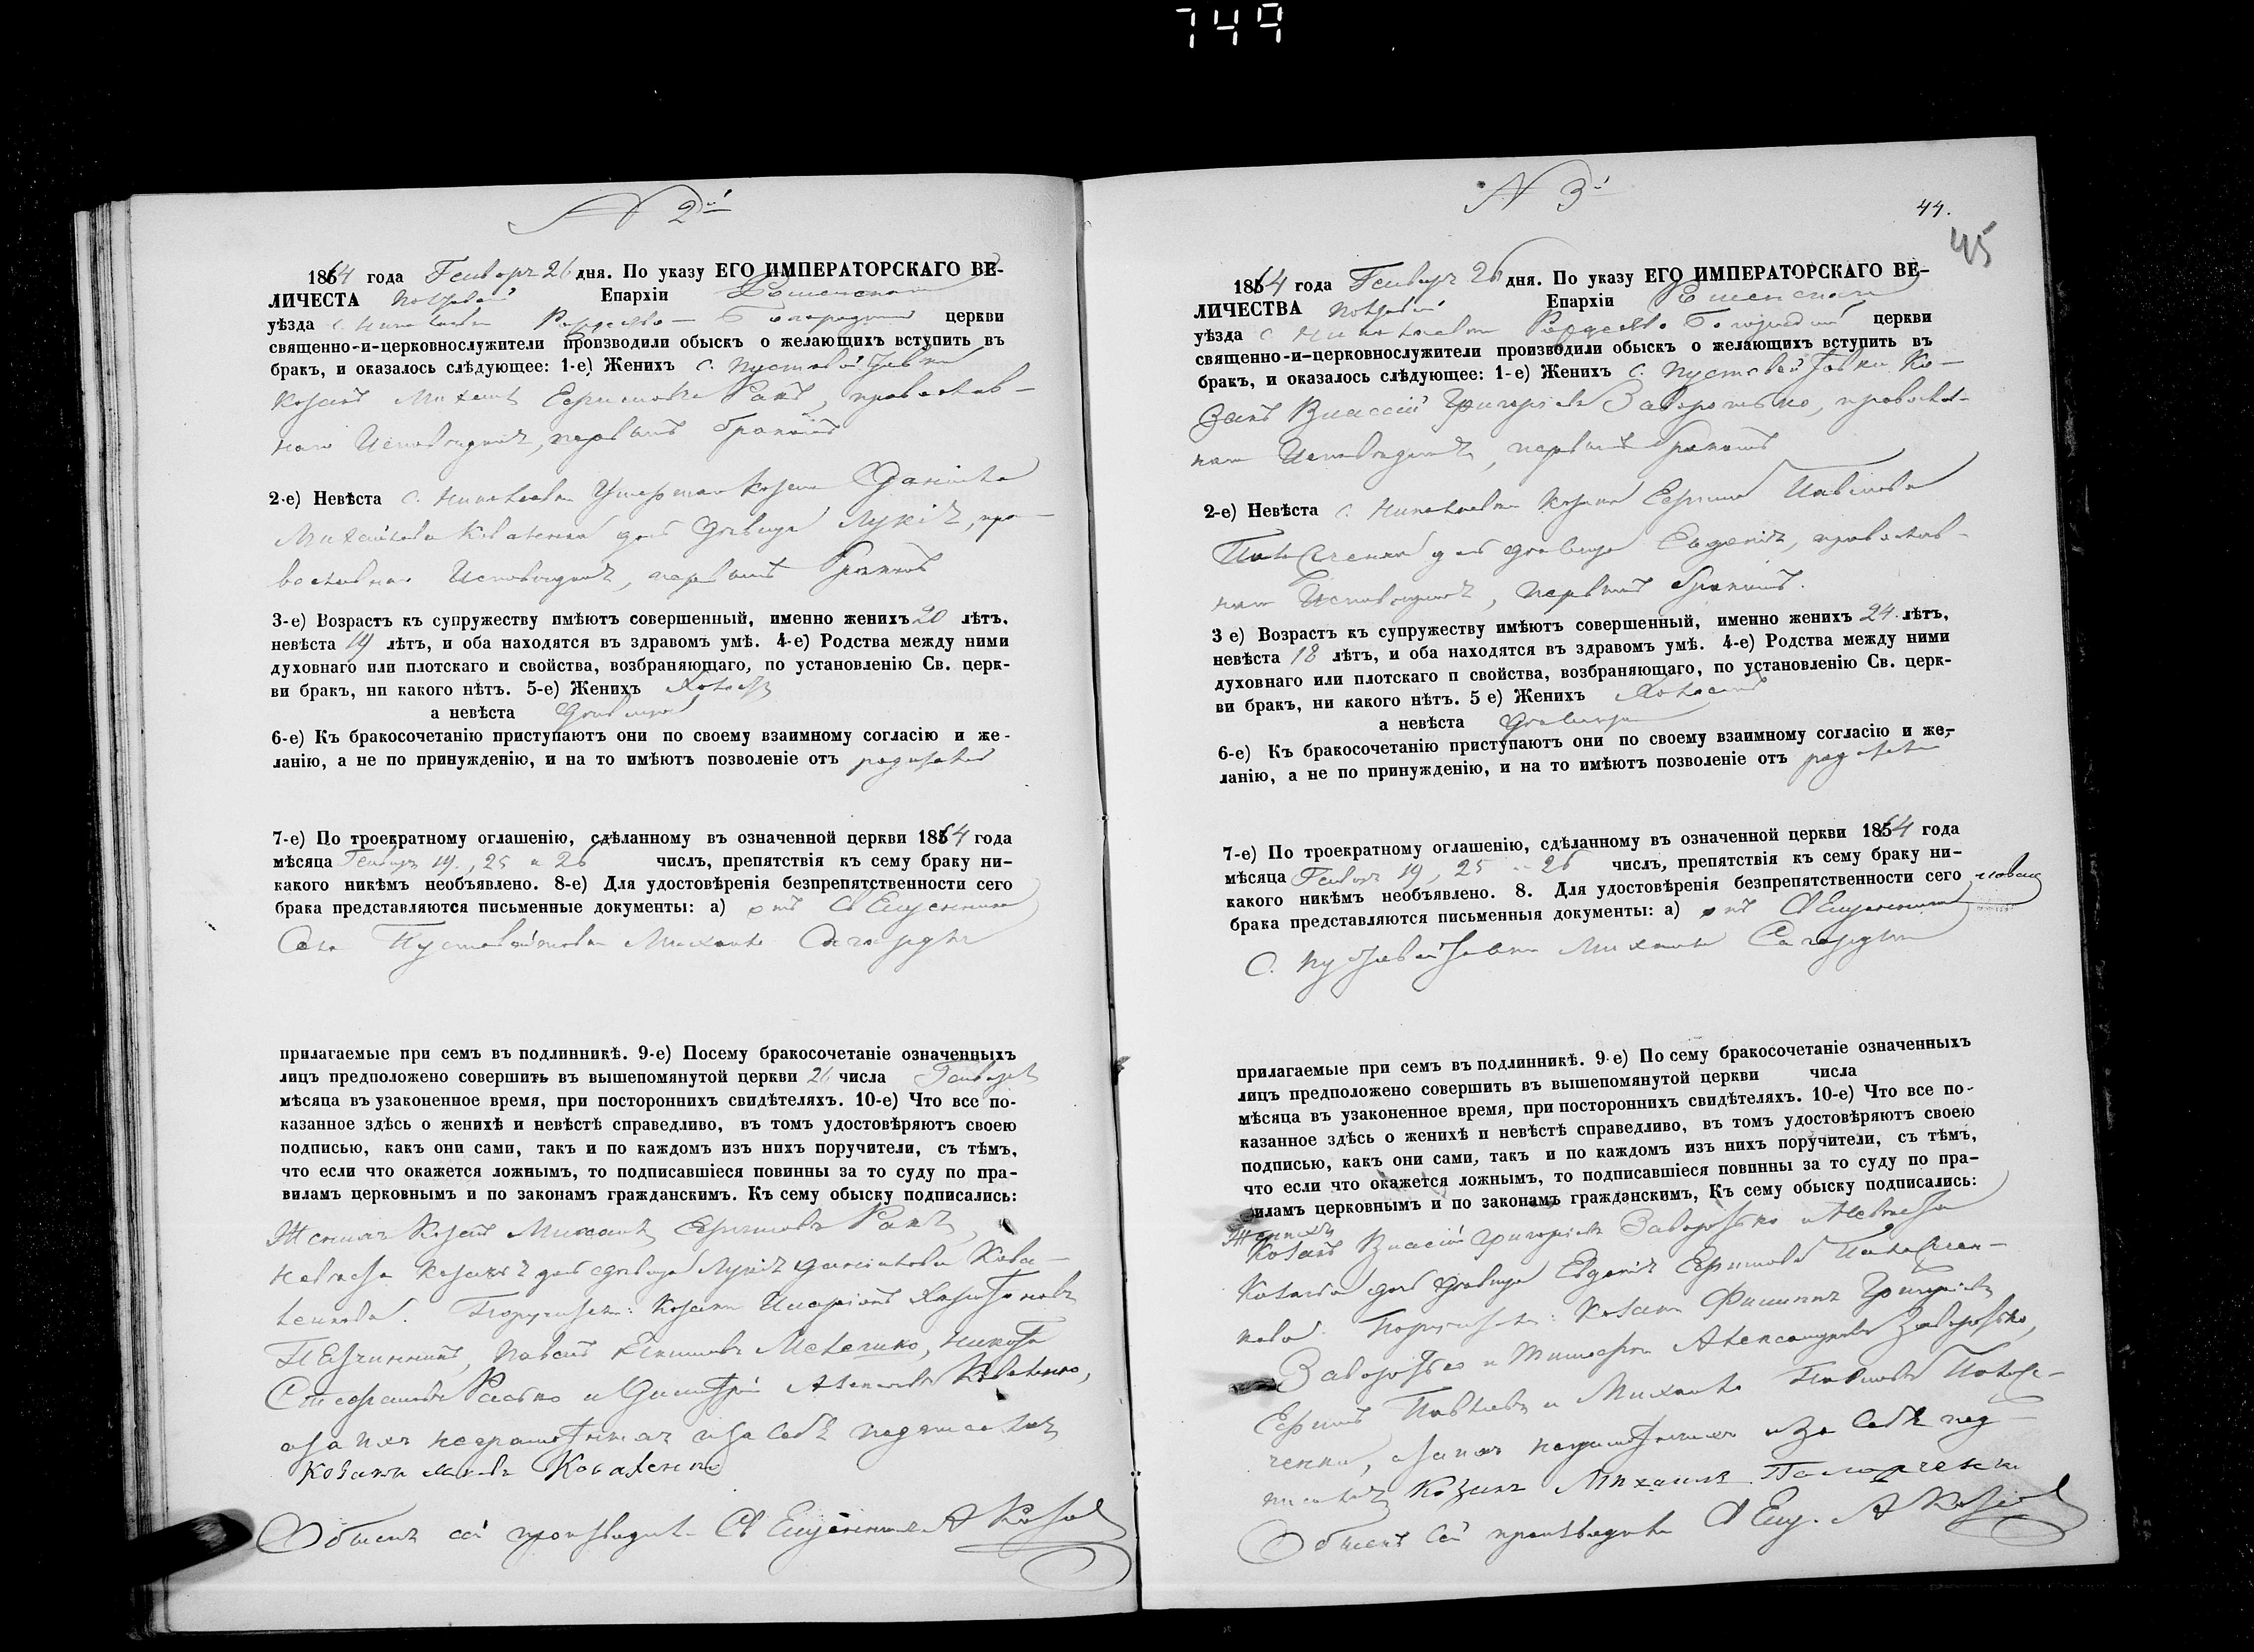 749
N 2й
1864 года Генваря 26 дня. По указу ЕГО ИМПЕРАТОРСКАГО ВЕ-
ЛИЧЕСТА Полтавской Епархіи
уѣзда с. Николаевки Рождество-Богородичной церкви
священно-и-церковнослужители производили обыскъ о желающихъ вступить въ
бракъ, и оказалось слѣдующее: 1-е) Женихъ с. Пустовойтовки
Козакъ Михаилъ Ефимовъ Ракъ, православ-
наго Исповѣданія, первымъ бракомъ
2-е) Невѣста с. Николаевки Умершаго Козака Даніила
Михайлова Коваленка дочь дѣвица Лукія, пра-
вославнаго Исповѣданія, первымъ бракомъ
3-е) Возрастъ къ супружеству имѣютъ совершенный, именно женихъ 20 лѣтъ.
невѣста 19 лѣтъ, и оба находятся въ здравомъ умѣ. 4-е) Родства между ними
духовнаго или плотскаго и свойства, возбраняющаго, по установленію Св. церк-
ви бракъ, ни какого нѣтъ. 5-е) Женихъ холостъ
а невѣста дѣвица
6-е) Къ бракосочетанію приступаютъ они по своему взаимному согласію и же-
ланію, а не по принужденію, и на то имѣютъ позволеніе отъ родителей
7-е) По троекратному оглашенію, сдѣланному въ означенной церкви 1864 года
мѣсяца Генваря 19, 25 и 26 числъ, препятствія къ сему браку ни-
какого никѣмъ необъявлено. 8-е) Для удостовѣренія безпрепятственности сего
брака представляются письменные документы: а) отъ Священника
Села Пустовойтовки Михаила
прилагаемые при семъ въ подлинникѣ. 9-е) Посему бракосочетаніе означенныхъ
лицъ предположено совершить въ вышепомянутой церкви 26 числа Генваря
мѣсяца въ узаконенное время, при постороннихъ свидѣтеляхъ. 10-е) Что все по-
казанное здѣсь о женихѣ и невѣстѣ справедливо, въ томъ удостовѣряютъ своею
подписью, какъ они сами, такъ и по каждомъ изъ нихъ поручители, съ тѣмъ,
что если что окажется ложнымъ, то подписавшіеся повинны за то суду по пра-
виламъ церковнымъ и по законамъ гражданскимъ. Къ сему обыску подписались:
Женихъ Козакъ Михаилъ Ефимовъ Ракъ,
невѣста Козачья дочь дѣвица Лукія Даніилова Кова-
ленкова. Поручители: Козаки Иларіонъ Харитоновъ
Павелъ Мателенко, Никита
Стефановъ и Димитрій Коваленко,
а за ихъ неграмотныхъ и за себя подписался
Козакъ Коваленко
Обыскъ сей производилъ Священникъ А
N 3й
44.
45
1864 года Генваря 26 дня. По указу ЕГО ИМПЕРАТОРСКАГО ВЕ-
ЛИЧЕСТВА Полтавской Епархіи
уѣзда с. Николаевки Рождество Богородичной церкви
священно-и-церковнослужители производили обыскъ о желающихъ вступить въ
бракъ, и оказалось слѣдующее: 1-е) Женихъ с. Пустовойтовки Ко-
закъ Власій Григоріевъ Заворотько, православ-
наго Исповѣданія, первымъ бракомъ
2-е) Невѣста с. Николаевки Козака Ефима Павлова
дочь дѣвица Евдокія, православ-
наго Исповѣданія, первымъ бракомъ.
3 е) Возрастъ къ супружеству имѣютъ совершенный, именно женихъ 24 лѣтъ,
невѣста 18 лѣтъ, и оба находятся въ здравомъ умѣ. 4-е) Родства между ними
духовнаго или плотскаго п свойства, возбраняющаго, по установленію Св. церк-
ви бракъ, ни какого нѣтъ. 5 е) Женихъ холостъ
а невѣста дѣвица
6-е) Къ бракосочетанію приступаютъ они по своему взаимному согласію и же-
ланію, а не по принужденію, и на то имѣютъ позволеніе отъ родителей
7-е) По троекратному оглашенію, сдѣланному въ означенной церкви 1864 года
мѣсяца Генваря 19, 25 и 26 числъ, препятствія къ сему браку ни-
какого никѣмъ необъявлено. 8. Для удостовѣренія безпрепятственности сего
брака представляются письменныя документы: а) отъ Священника
С. Пустовойтовки Михаила
прилагаемые при семъ въ подлинникѣ. 9-е) По сему бракосочетаніе означенныхъ
лицъ предположено совершить въ вышепомянутой церкви числа
мѣсяца въ узаконенное время, при постороннихъ свидѣтеляхъ. 10-е) Что все по-
казанное здѣсь о женихѣ и невѣстѣ справедливо, въ томъ удостовѣряютъ своею
подписью, какъ они сами, такъ и по каждомъ изъ нихъ поручители, съ тѣмъ,
что если что окажется ложнымъ, то подписавшіеся повинны за то суду по пра-
виламъ церковнымъ и по законамъ гражданскимъ, Къ сему обыску подписались:
Женихъ
Козакъ Власій Григоріевъ Заворотько и Невѣста
Козачья дочь дѣвица Евдокія Ефимова
Поручители: Козаки Филиппъ Григоріевъ
Заворотько и Тимофей Александровъ Заворотько,
Ефимъ Павловъ и Михаилъ Павловъ
а за ихъ неграмотныхъ и за себя под-
писался Козакъ Михаилъ
Обыскъ сей производилъ Свящ. А